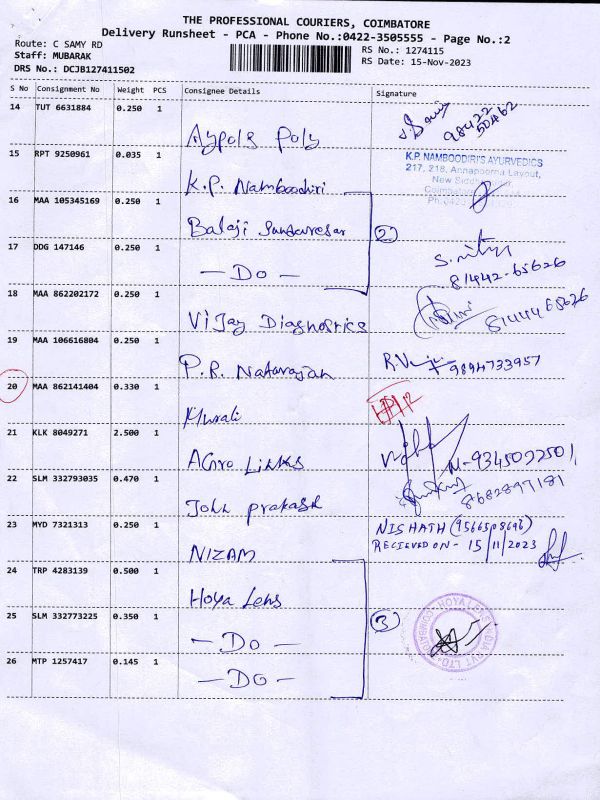 THE PROFESSIONAL COURIERS, COIMBATORE
Delivery Runsheet - PCA - Phone No.:0422-3505555 - Page No.:2
Route: C SAMY RD
Staff: MUBARAK
DRS No.: DCJB127411502
RS No.: 1274115
RS Date: 15-Nov-2023
S No Consignment No Weight PCS Consignee Details Signature
14 TUT 6631884 0.250 1
Aypols Poly
98422
50462
15 RPT 9250961 0.035 1
K.P. Namboodiri
K.P. NAMBOODIRI'S AYURVEDICS
217, 218, Annapoorna Layout,
16 MAA 105345169 0.250 1
Balaji Sundaresar
(2)
17 DDG 147146 0.250 1
— Do —
81442-65626
18 MAA 862202172 0.250 1
Vijay Diagnostics
8144465626
19 MAA 106616804 0.250 1
P.R. Natarajan
9894733957
20 MAA 862141404 0.330 1
Murali
21 KLK 8049271 2.500 1
Agro Links
M-9345022501,
22 SLM 332793035 0.470 1
John prakash
8682897181
23 MYD 7321313 0.250 1
NIZAM
NISHATH (9566508696)
RECIEVED ON - 15/11/2023
24 TRP 4283139 0.500 1
Hoya Lens
25 SLM 332773225 0.350 1
— Do —
(3)
HOYA LENS INDIA PVT LTD.
COIMBATORE
26 MTP 1257417 0.145 1
— DO —